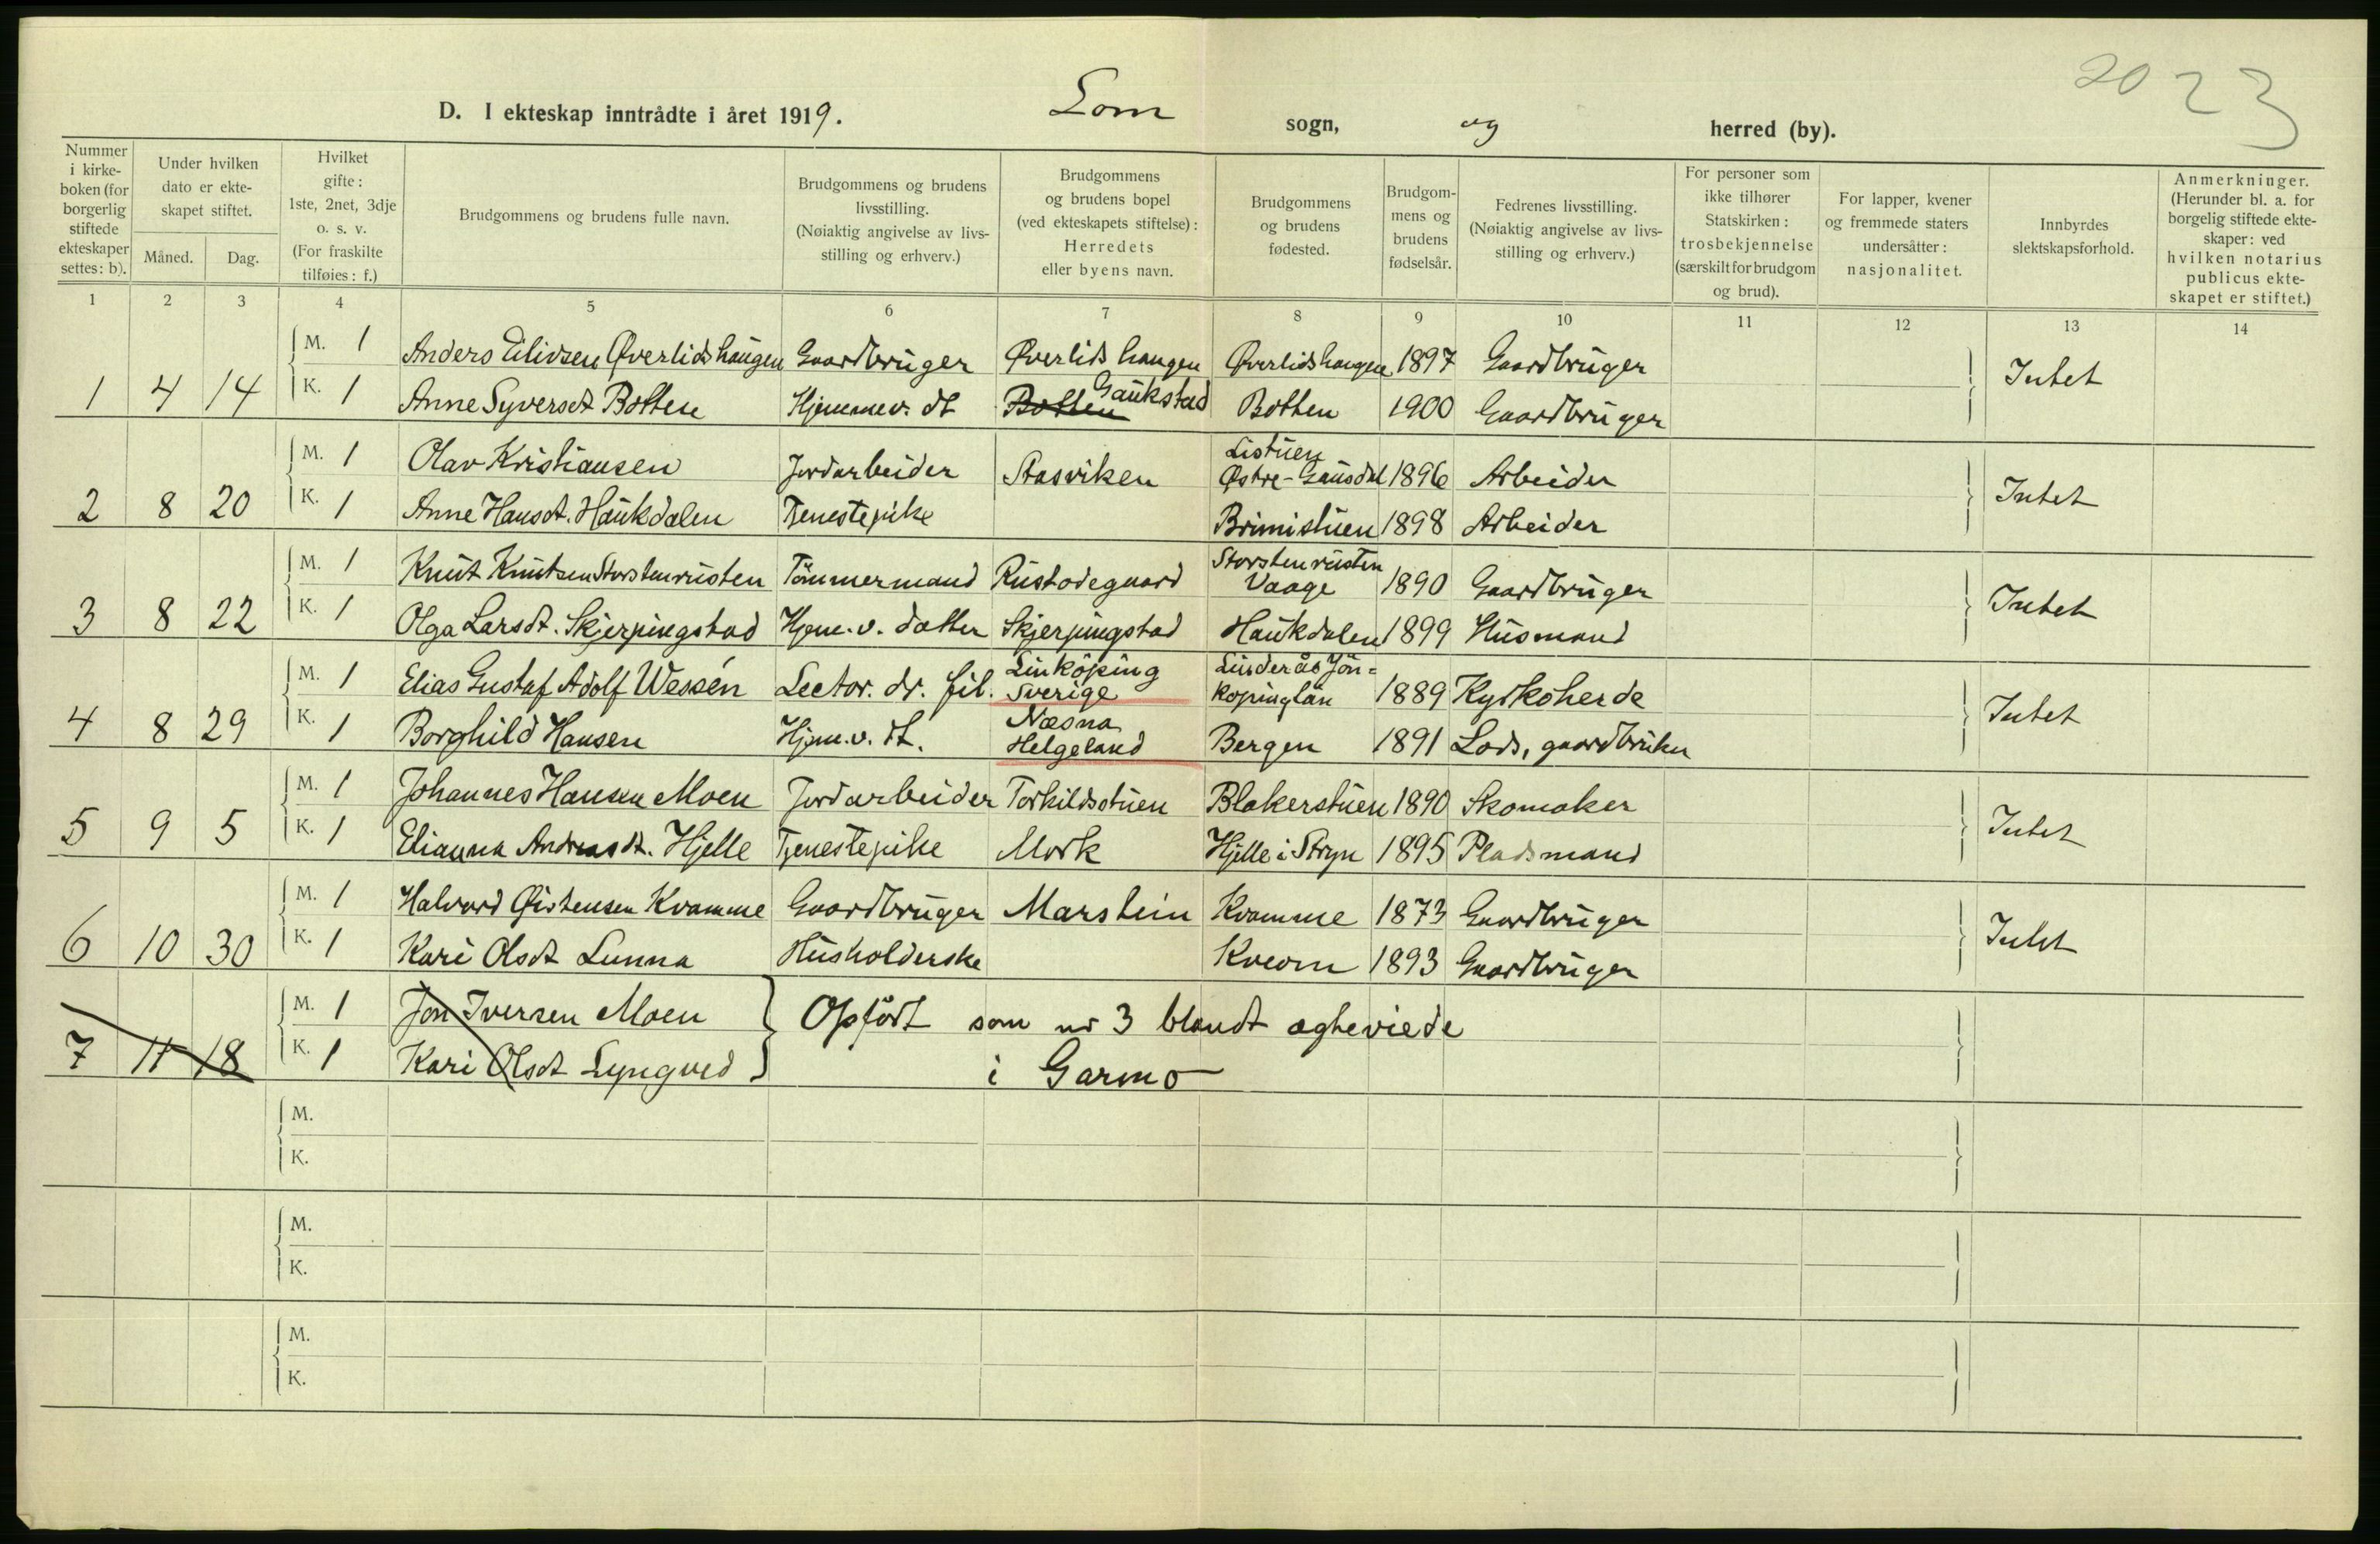 20 23
D. I ekteskap inntrådte i året 1919. Lom sogn, og herred (by).
Nummer i kirke-boken (for borgerlig stiftede ekteskaper settes: b).
Under hvilken dato er ekte-skapet stiftet.
Måned. Dag.
Hvilket gifte: 1ste, 2net, 3dje o. s. v. (For fraskilte tilføies: f.)
Brudgommens og brudens fulle navn.
Brudgommens og brudens livsstilling. (Nøiaktig angivelse av livs-stilling og erhverv.)
Brudgommens og brudens bopel (ved ekteskapets stiftelse): Herredets eller byens navn.
Brudgommens og brudens fødested.
Brudgom-mens og brudens fødselsår.
Fedrenes livsstilling. (Nøiaktig angivelse av livs-stilling og erhverv.)
For personer som ikke tilhører Statskirken: trosbekjennelse (særskilt for brudgom og brud).
For lapper, kvener og fremmede staters undersåtter: nasjonalitet.
Innbyrdes slektskapsforhold.
Anmerkninger. (Herunder bl. a. for borgelig stiftede ekte-skaper: ved hvilken notarius publicus ekte-skapet er stiftet.)
1 2 3 4 5 6 7 8 9 10 11 12 13 14
M. 1 Anders Eilivsen Øverlidshaugen Gaardbruger Øverlidshaugen Øverlidshaugen 1897 Gaardbruger Intet
1 4 14 K. 1 Anne Syversdt Botten Hjemmev. dt Botten Gaukstad Botten 1900 Gaardbruger
M. 1 Olav Kristiansen Jordarbeider Aasviken Listuen Østre-Gausdal 1896 Arbeider Intet
2 8 20 K. 1 Anne Hansdt. Haukdalen Tjenestepike Brimistuen 1898 Arbeider
M. 1 Knut Knutsen Storstenrusten Tömmermand Rustodegaard Storstenrusten Vaage 1890 Gaardbruger Intet
3 8 22 K. 1 Olga Larsdt. Skjerpingstad Hjem.v. datter Skjerpingstad Haukdalen 1899 Husmand
M. 1 Elias Gustaf Adolf Wessén Lector. dr. fil. Linköping Sverige Linderås Jön=köpinglän 1889 Kyrkoherde Intet
4 8 29 K. 1 Borghild Hansen Hjem.v. dt. Næsna Helgeland Bergen 1891 Lods, gaardbruker
M. 1 Johannes Hansen Moen Jordarbeider Torkildsstuen Blakerstuen 1890 Skomaker Intet
5 9 5 K. 1 Elianna Andreasdt. Hjelle Tjenestepike Mork Hjelle i Stryn 1895 Pladsmand
M. 1 Halvard Øistensen Kvamme Gaardbruger Marstein Kvamme 1873 Gaardbruger Intet
6 10 30 K. 1 Kari Olsdt Lunna Husholderske Kveom 1893 Gaardbruger
M. 1 Jon Iversen Moen Opfört som nr 3 blandt ægteviede
7 11 18 K. 1 Kari Olsdt Lyngved i Garmo
M.
K.
M.
K.
M.
K.